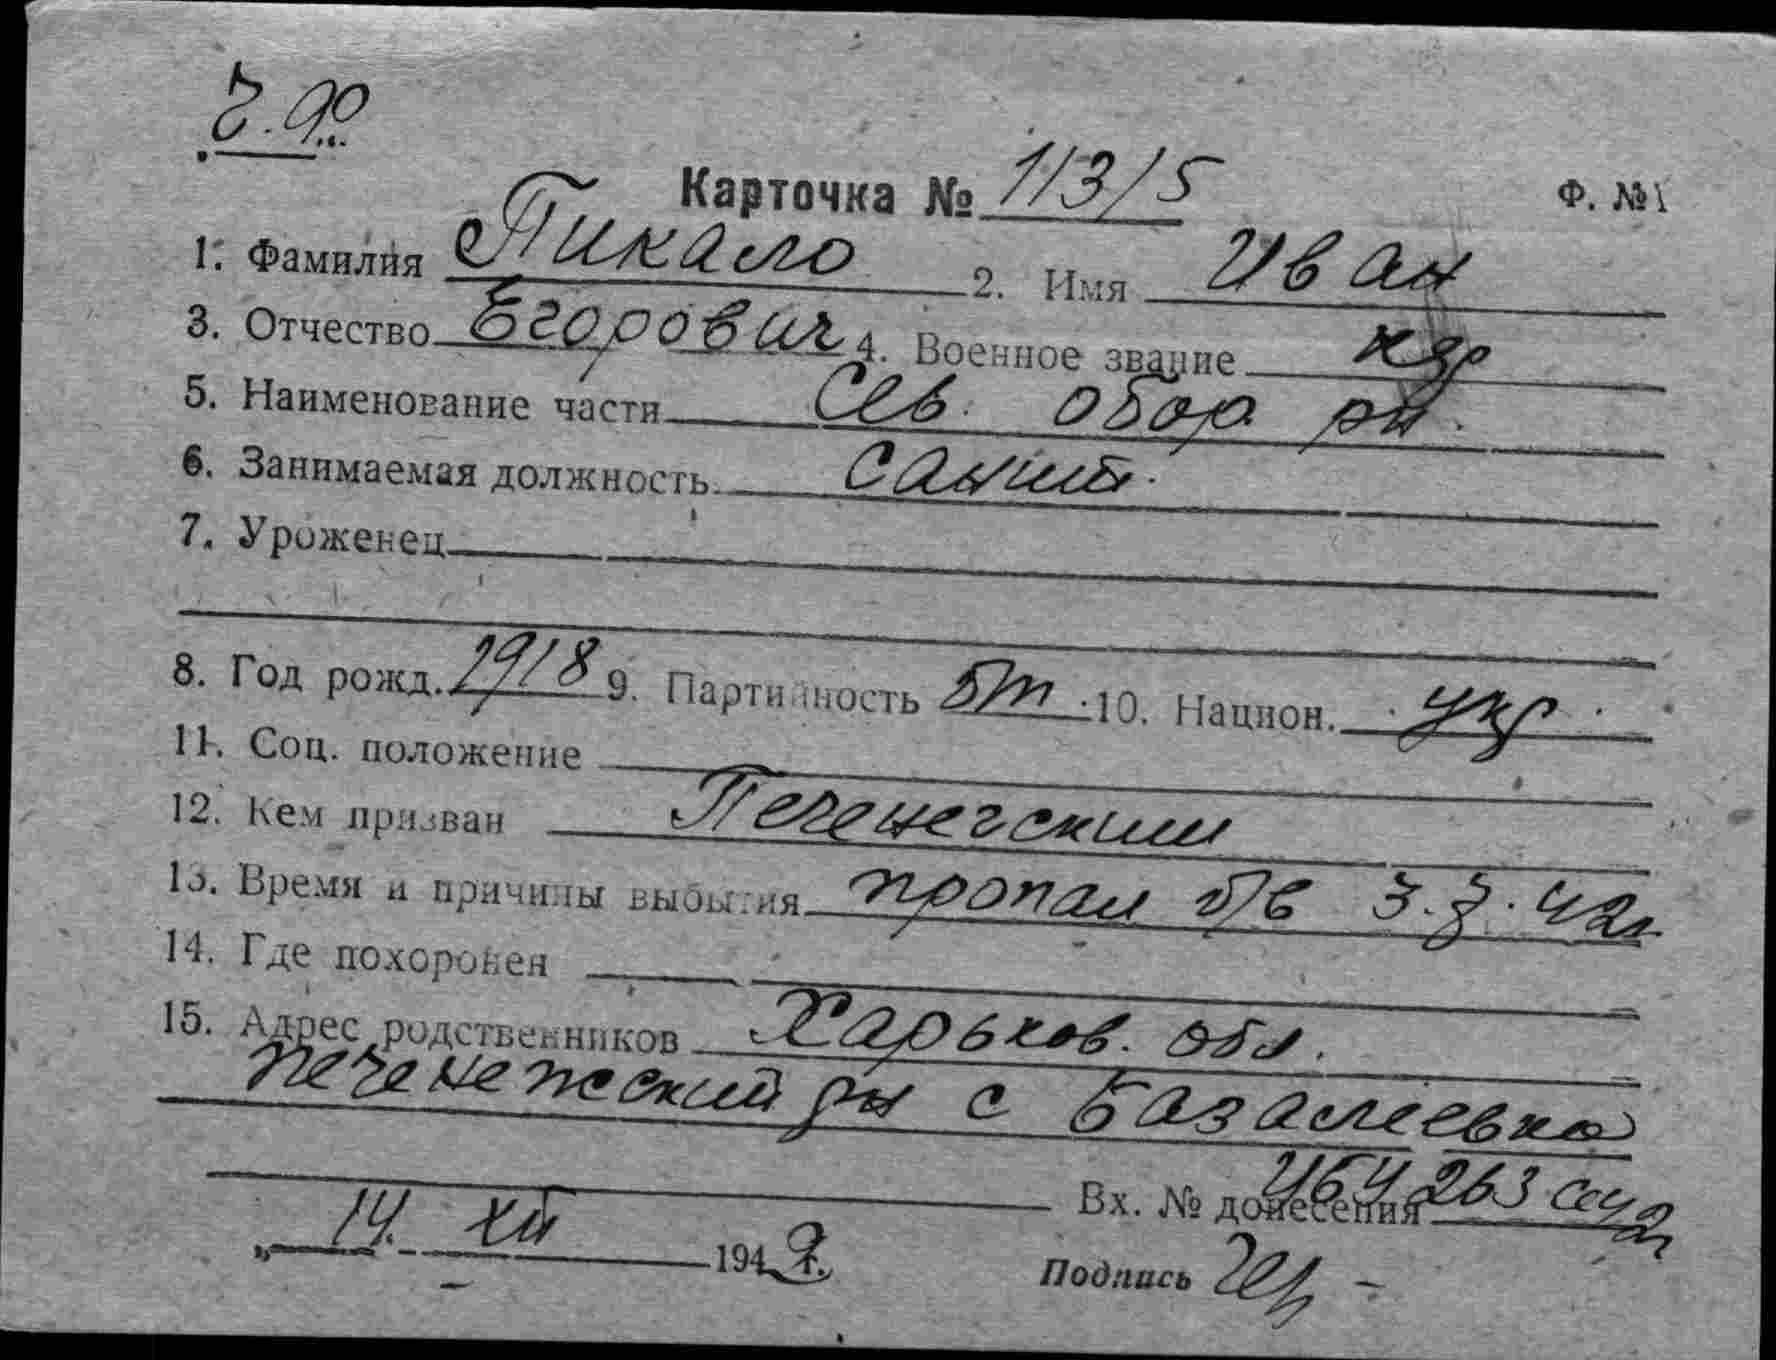 Ч.ФО
Карточка № 113/5 Ф. №1
1. Фамилия Пикало 2. Имя Иван
3. Отчество Егорович 4. Военное звание
5. Наименование части Сев. обор. рн.
6. Занимаемая должность санит.
7. Уроженец
8. Год рожд. 1918 9. Партийность б/п 10. Национ. укр.
11. Соц. положение
12. Кем призван Печенегским
13. Время и причины выбытия пропал б/в 3.7.42г
14. Где похоронен
15. Адрес родственников Харьков. обл.
печенежский рн с Базалеевка
Вх. № донесения 263
14. XII 1942.
Подпись